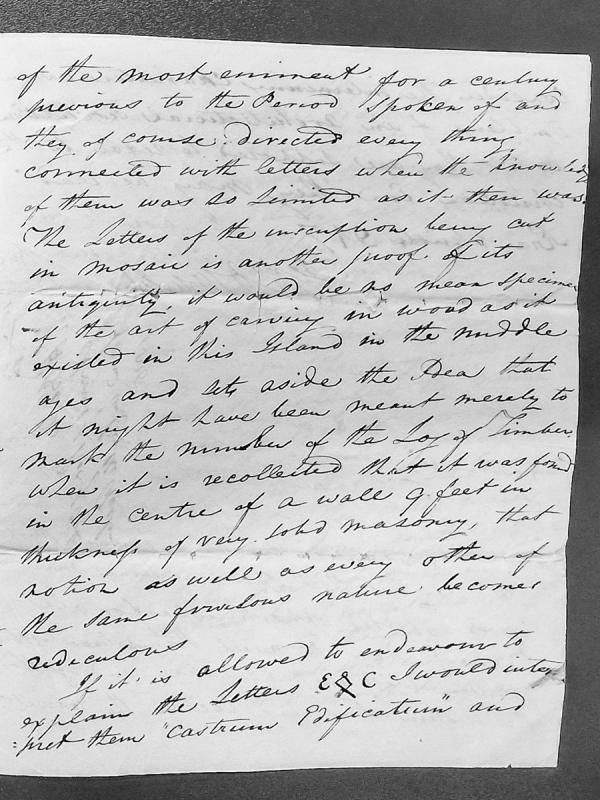 of the most eminent for a century
previous to the Period spoken of and
they of course directed every thing
connected with letters when the knowledg
of them was so Limited as it then was.
The Letters of the inscription being cut
in Mosaic is another proof of its
antiquity, it would be no mean specimen
of the art of carving in wood as it
existed in this Island in the middle
ages and sets aside the Idea that
it might have been meant merely to
mark the number of the Log of Timber.
When it is recollected that it was found
in the centre of a wall 9 feet in
thickness of very solid masonry, that
notion as well as every other of
the same frivolous nature becomes
rediculous
If it is allowed to endeavour to
explain the Letters E&C I would inter
=pret them "Castrum Edificatum" and